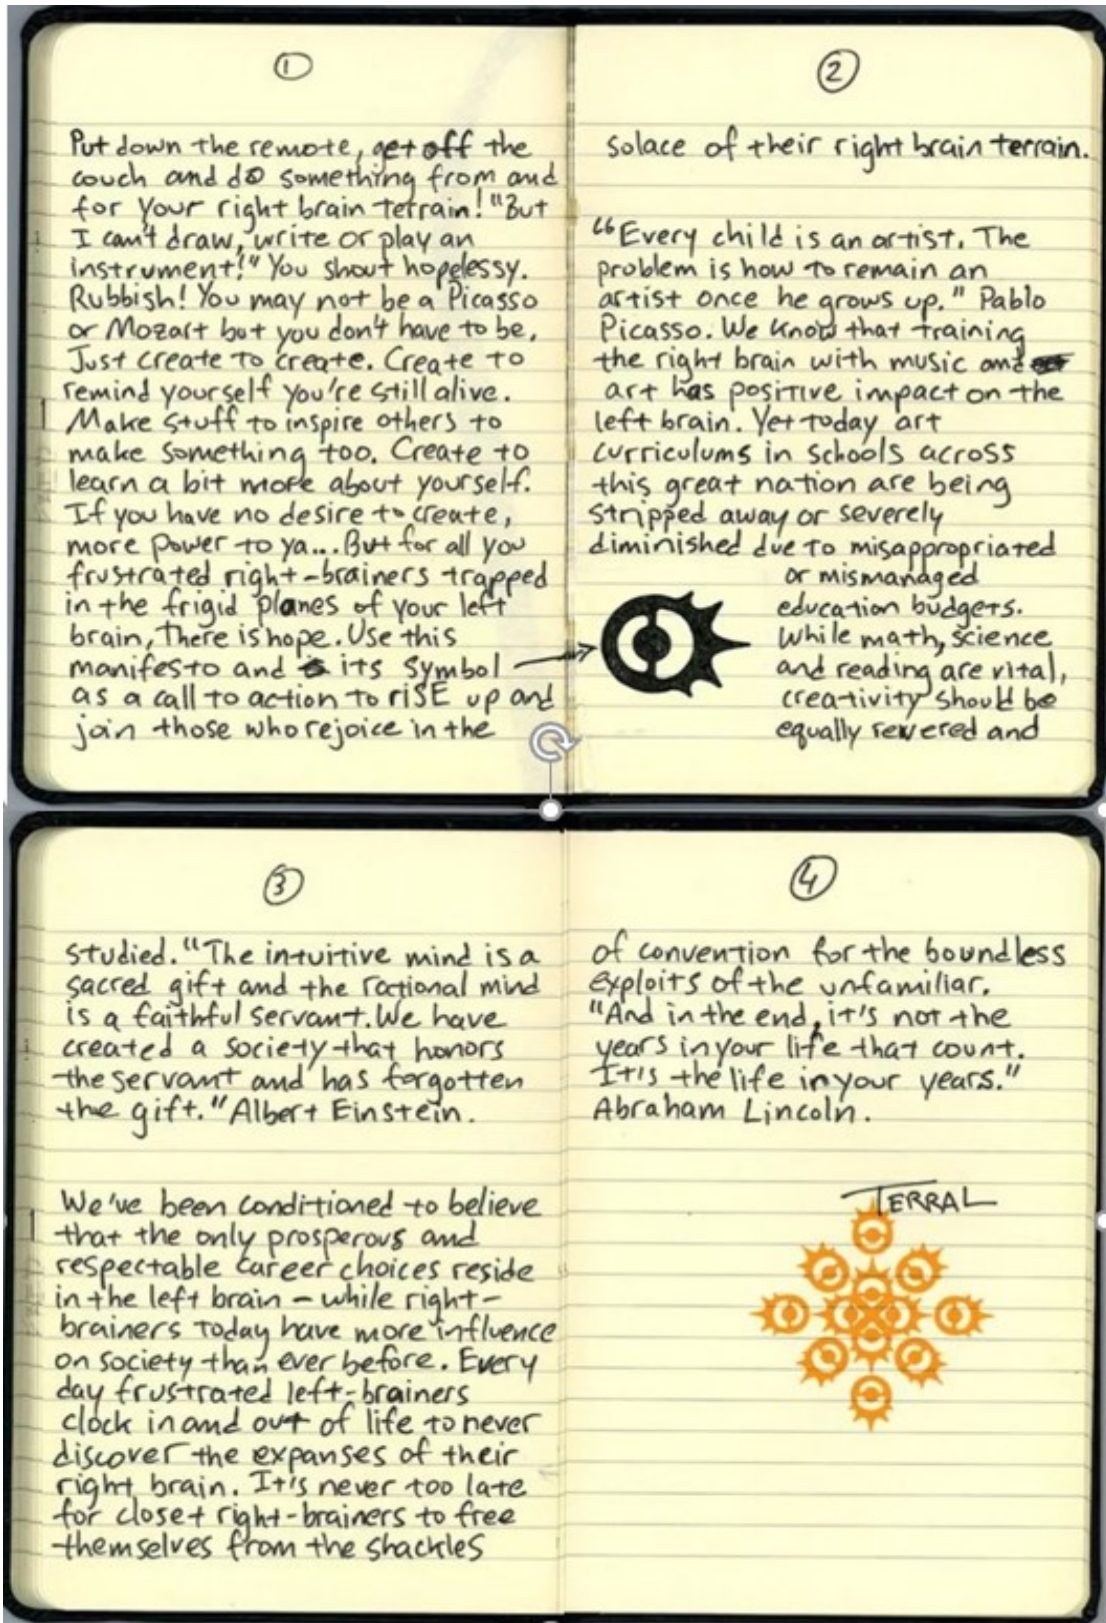 1
Put down the remote, get off the
couch and do something from and
for your right brain terrain! "But
I can't draw, write or play an
instrument!" You shout hopelessy.
Rubbish! You may not be a Picasso
or Mozart but you don't have to be.
Just create to create. Create to
remind yourself you're still alive.
Make stuff to inspire others to
make something too. Create to
learn a bit more about yourself.
If you have no desire to create,
more power to ya... But for all you
frustrated right-brainers trapped
in the frigid planes of your left
brain, there is hope. Use this
manifesto and its symbol
as a call to action to riSE up and
join those who rejoice in the
2
solace of their right brain terrain.
"Every child is an artist. The
problem is how to remain an
artist once he grows up." Pablo
Picasso. We know that training
the right brain with music and
art has positive impact on the
left brain. Yet today art
curriculums in schools across
this great nation are being
stripped away or severely
diminished due to misappropriated
or mismanaged
education budgets.
While math, science
and reading are vital,
creativity should be
equally revered and
3
studied. "The intuitive mind is a
sacred gift and the rational mind
is a faithful servant. We have
created a society that honors
the servant and has forgotten
the gift." Albert Einstein.
We've been conditioned to believe
that the only prosperous and
respectable career choices reside
in the left brain - while right-
brainers today have more influence
on society than ever before. Every
day frustrated left-brainers
clock in and out of life to never
discover the expanses of their
right brain. It's never too late
for closet right-brainers to free
themselves from the shackles
4
of convention for the boundless
exploits of the unfamiliar.
"And in the end, it's not the
years in your life that count.
It's the life in your years."
Abraham Lincoln.
TERRAL